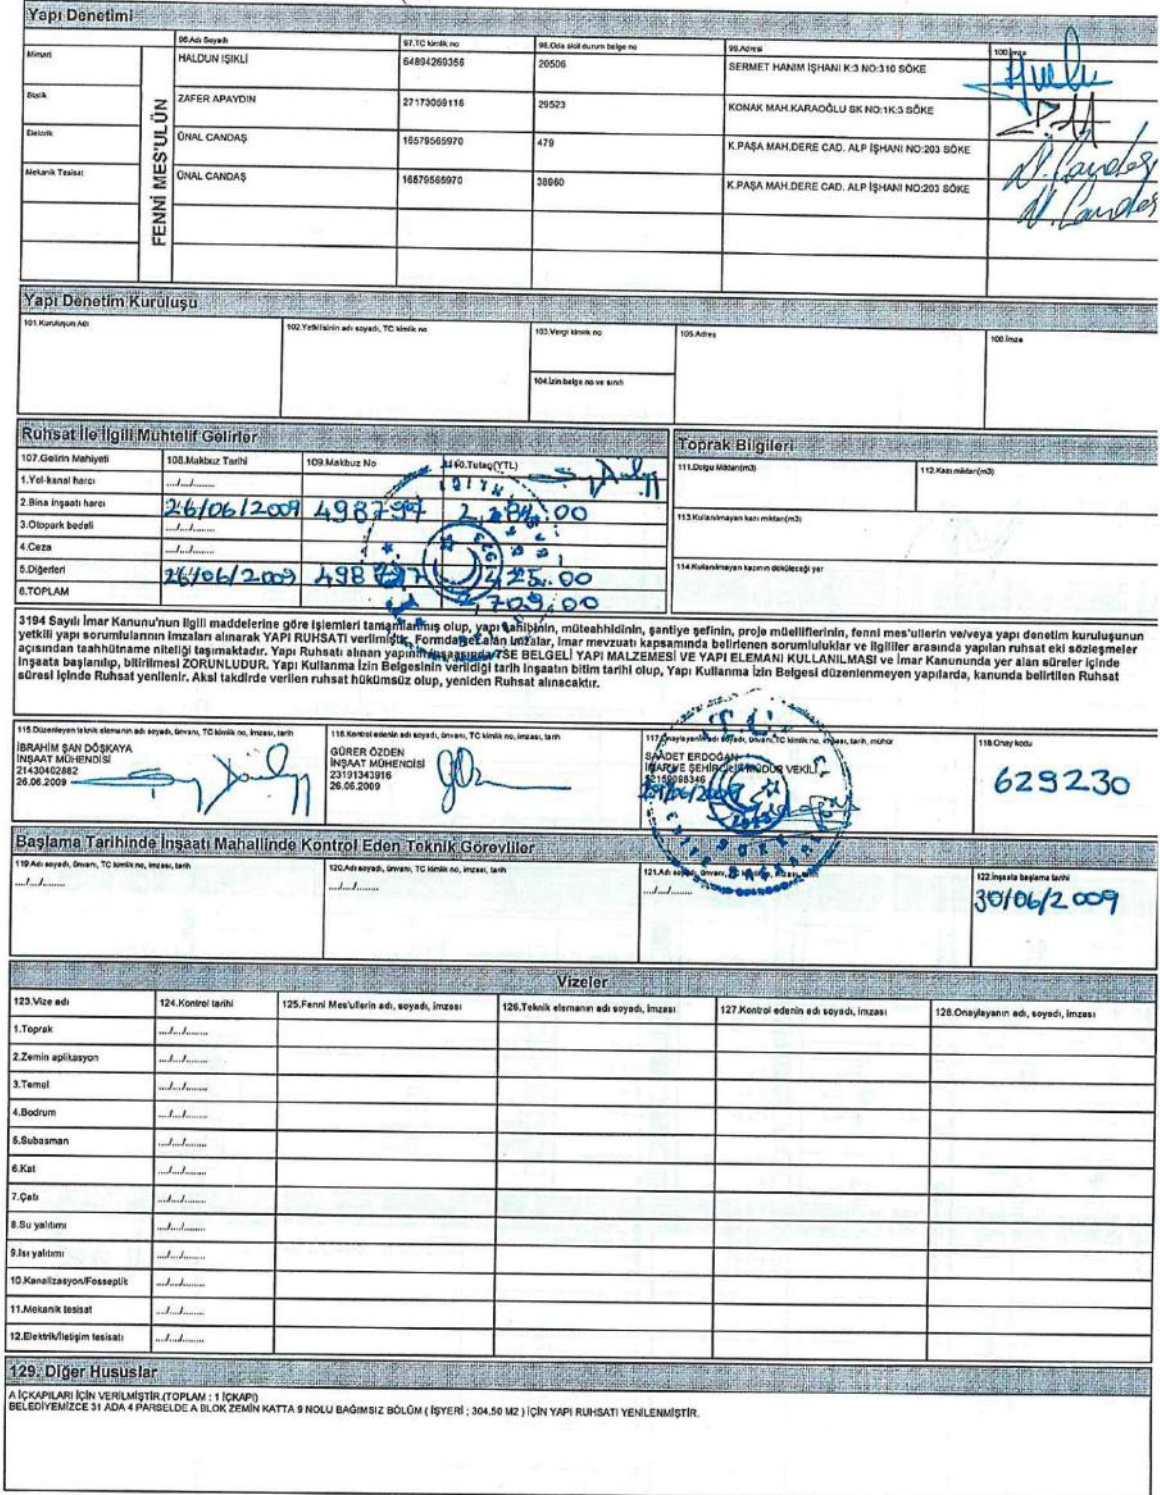 Yapı Denetimi
96.Adı Soyadı 97.TC kimlik no 98.Oda sicil durum belge no 99.Adresi 100.İmza
FENNİ MES'ULÜN
Mimari HALDUN IŞIKLI 64894269356 20506 SERMET HANIM İŞHANI K:3 NO:310 SÖKE
Statik ZAFER APAYDIN 27173059116 29523 KONAK MAH.KARAOĞLU SK NO:1K:3 SÖKE
Elektrik ÜNAL CANDAŞ 16579565970 479 K.PAŞA MAH.DERE CAD. ALP İŞHANI NO:203 SÖKE
Mekanik Tesisat ÜNAL CANDAŞ 16579565970 38960 K.PAŞA MAH.DERE CAD. ALP İŞHANI NO:203 SÖKE
Yapı Denetim Kuruluşu
101.Kuruluşun Adı 102.Yetkilisinin adı soyadı, TC kimlik no 103.Vergi kimlik no 105.Adres 100.İmza
104.İzin belge no ve sınıfı
Ruhsat İle İlgili Muhtelif Gelirler
107.Gelirin Mahiyeti 108.Makbuz Tarihi 109.Makbuz No 110.Tutar(YTL)
1.Yol-kanal harcı .../.../........
2.Bina inşaatı harcı 26/06/2009 498797 2,284.00
3.Otopark bedeli .../.../........
4.Ceza .../.../........
5.Diğerleri 26/06/2009 498797 425.00
6.TOPLAM 2,709.00
Toprak Bilgileri
111.Dolgu Miktarı(m3) 112.Kazı miktarı(m3)
113.Kullanılmayan kazı miktarı(m3)
114.Kullanılmayan kazının döküleceği yer
3194 Sayılı İmar Kanunu'nun ilgili maddelerine göre işlemleri tamamlanmış olup, yapı sahibinin, müteahhidinin, şantiye şefinin, proje müelliflerinin, fenni mes'ullerin ve/veya yapı denetim kuruluşunun
yetkili yapı sorumlularının imzaları alınarak YAPI RUHSATI verilmiştir. Formda yer alan imzalar, imar mevzuatı kapsamında belirlenen sorumluluklar ve ilgililer arasında yapılan ruhsat eki sözleşmeler
açısından taahhütname niteliği taşımaktadır. Yapı Ruhsatı alınan yapının inşaasında TSE BELGELİ YAPI MALZEMESİ VE YAPI ELEMANI KULLANILMASI ve İmar Kanununda yer alan süreler içinde
inşaata başlanılıp, bitirilmesi ZORUNLUDUR. Yapı Kullanma İzin Belgesinin verildiği tarih inşaatın bitim tarihi olup, Yapı Kullanma İzin Belgesi düzenlenmeyen yapılarda, kanunda belirtilen Ruhsat
süresi içinde Ruhsat yenilenir. Aksi takdirde verilen ruhsat hükümsüz olup, yeniden Ruhsat alınacaktır.
115.Düzenleyen teknik elemanın adı soyadı, ünvanı, TC kimlik no, imzası, tarih
İBRAHİM ŞAN DÖŞKAYA
İNŞAAT MÜHENDİSİ
21430402882
26.06.2009
116.Kontrol edenin adı soyadı, ünvanı, TC kimlik no, imzası, tarih
GÜRER ÖZDEN
İNŞAAT MÜHENDİSİ
23191343916
26.06.2009
117.Onaylayanın adı soyadı, ünvanı, TC kimlik no, imzası, tarih, mühür
SAADET ERDOĞAN
İMAR VE ŞEHİRCİLİK MÜDÜR VEKİLİ
T.C.
118.Onay kodu
629230
Başlama Tarihinde İnşaatı Mahallinde Kontrol Eden Teknik Görevliler
119.Adı soyadı, ünvanı, TC kimlik no, imzası, tarih 120.Adı soyadı, ünvanı, TC kimlik no, imzası, tarih 121.Adı soyadı, ünvanı, TC kimlik no, imzası, tarih 122.İnşaata başlama tarihi
.../.../........ .../.../........ .../.../........ 30/06/2009
Vizeler
123.Vize adı 124.Kontrol tarihi 125.Fenni Mes'ullerin adı, soyadı, imzası 126.Teknik elemanın adı soyadı, imzası 127.Kontrol edenin adı soyadı, imzası 128.Onaylayanın adı, soyadı, imzası
1.Toprak .../.../........
2.Zemin aplikasyon .../.../........
3.Temel .../.../........
4.Bodrum .../.../........
5.Subasman .../.../........
6.Kat .../.../........
7.Çatı .../.../........
8.Su yalıtımı .../.../........
9.Isı yalıtımı .../.../........
10.Kanalizasyon/Fosseptik .../.../........
11.Mekanik tesisat .../.../........
12.Elektrik/İletişim tesisatı .../.../........
129. Diğer Hususlar
A İÇKAPILARI İÇİN VERİLMİŞTİR.(TOPLAM : 1 İÇKAPI)
BELEDİYEMİZCE 31 ADA 4 PARSELDE A BLOK ZEMİN KATTA 9 NOLU BAĞIMSIZ BÖLÜM ( İŞYERİ ; 304,50 M2 ) İÇİN YAPI RUHSATI YENİLENMİŞTİR.